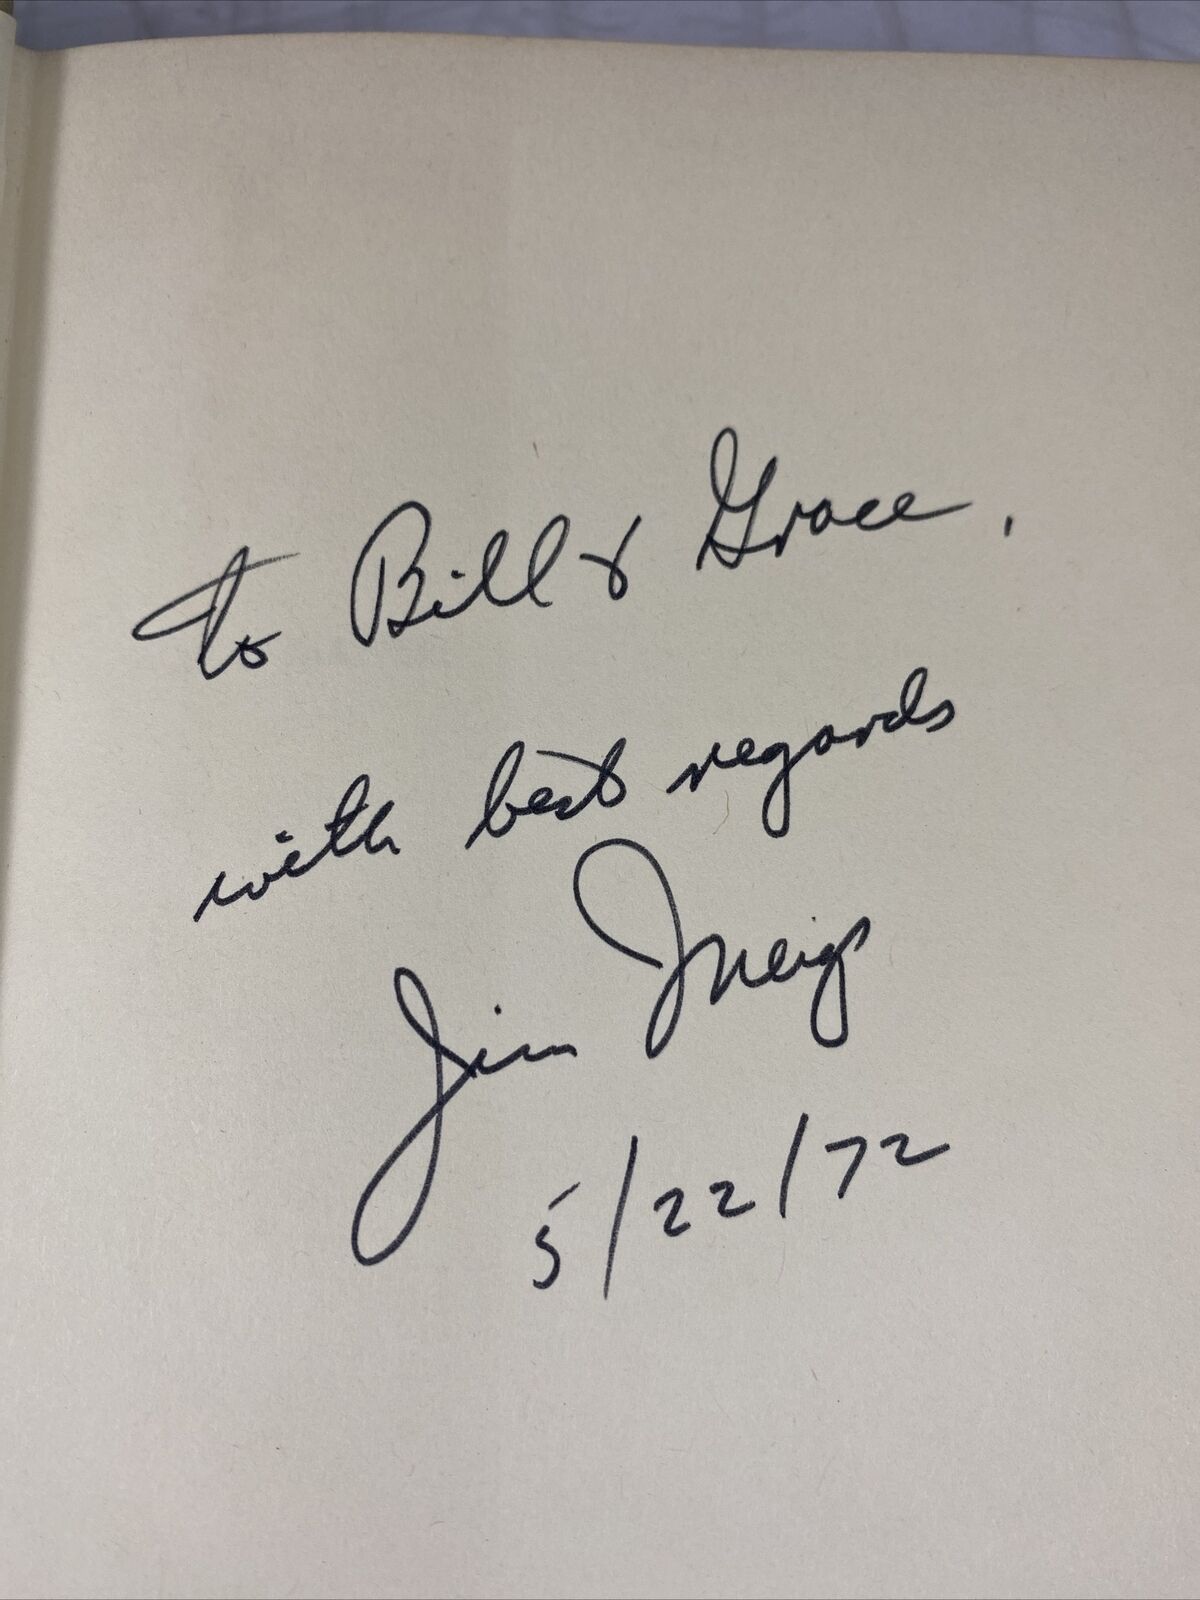 to Bill & Grace,
with best regards
Jim Meigs
5/22/72